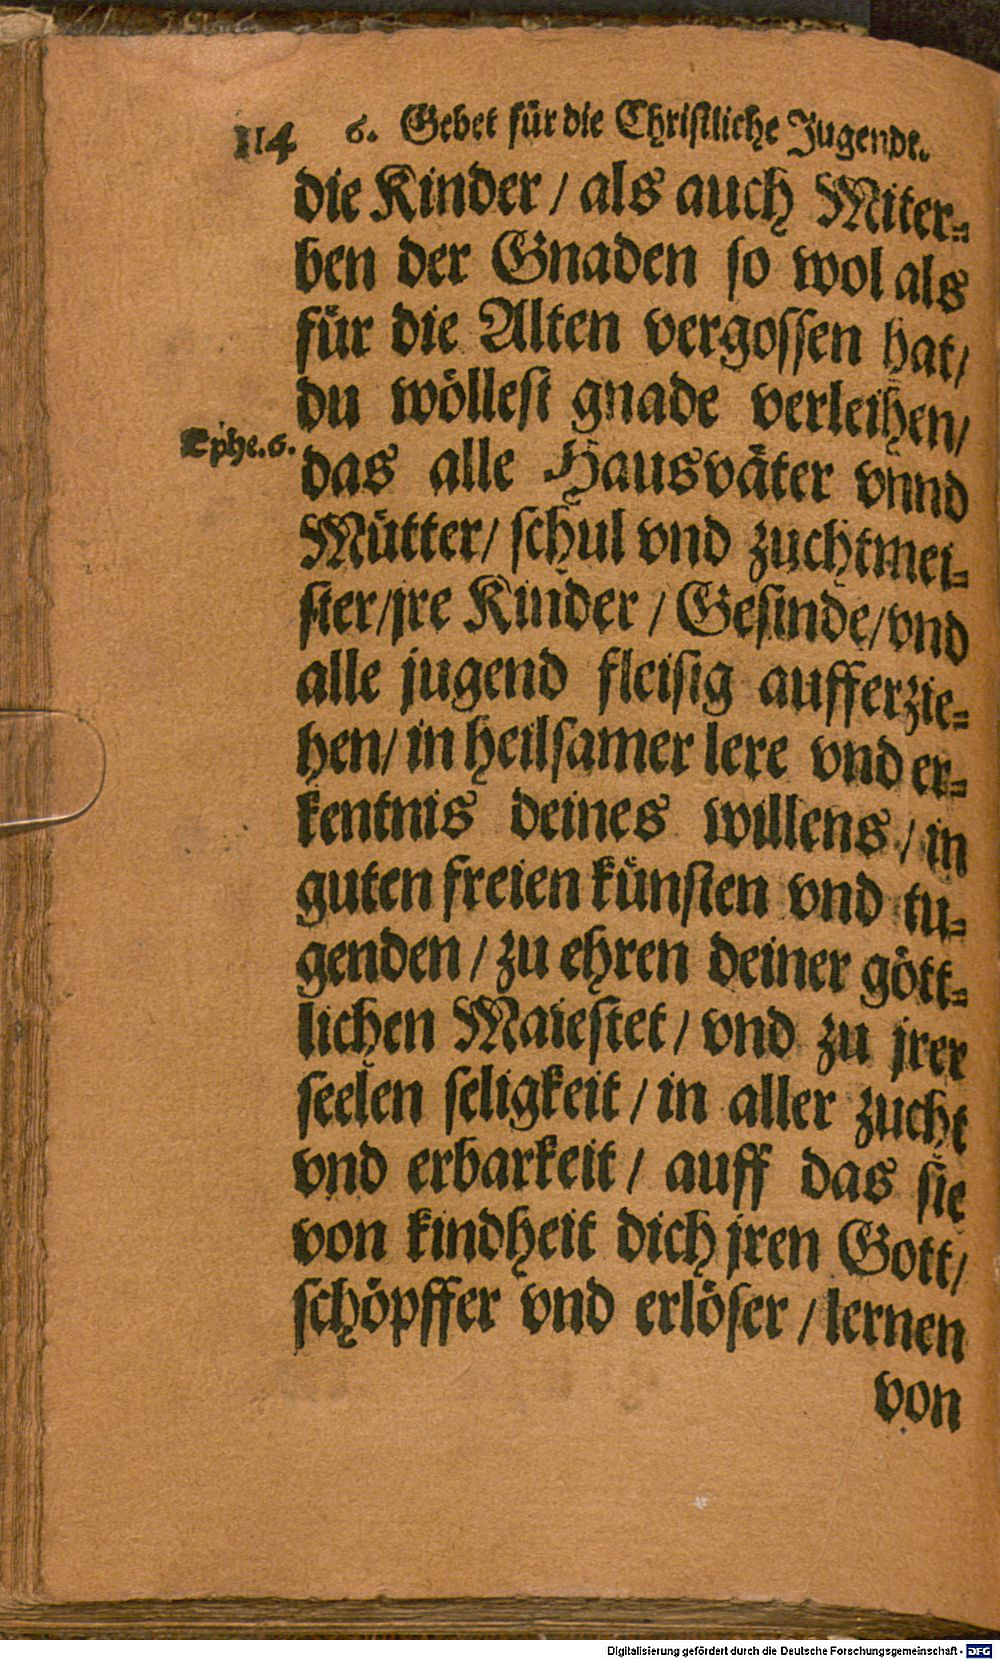 114 6. Gebet für die Christliche Jugendt.
die Kinder / als auch Miter⸗
ben der Gnaden so wol als
für die Alten vergossen hat /
du wöllest gnade verleihen /
Ephe. 6.
das alle Hausväter vnnd
Mütter / schul vnd zuchtmei⸗
ster / jre Kinder / Gesinde / vnd
alle jugend fleisig aufferzie⸗
hen / in heilsamer lere vnd er⸗
kentnis deines willens / in
guten freien künsten vnd tu⸗
genden / zu ehren deiner gött⸗
lichen Maiestet / vnd zu jrer
seelen seligkeit / in aller zucht
vnd erbarkeit / auff das sie
von kindheit dich jren Gott /
schöpffer vnd erlöser / lernen
von
Digitalisierung gefördert durch die Deutsche Forschungsgemeinschaft - DFG